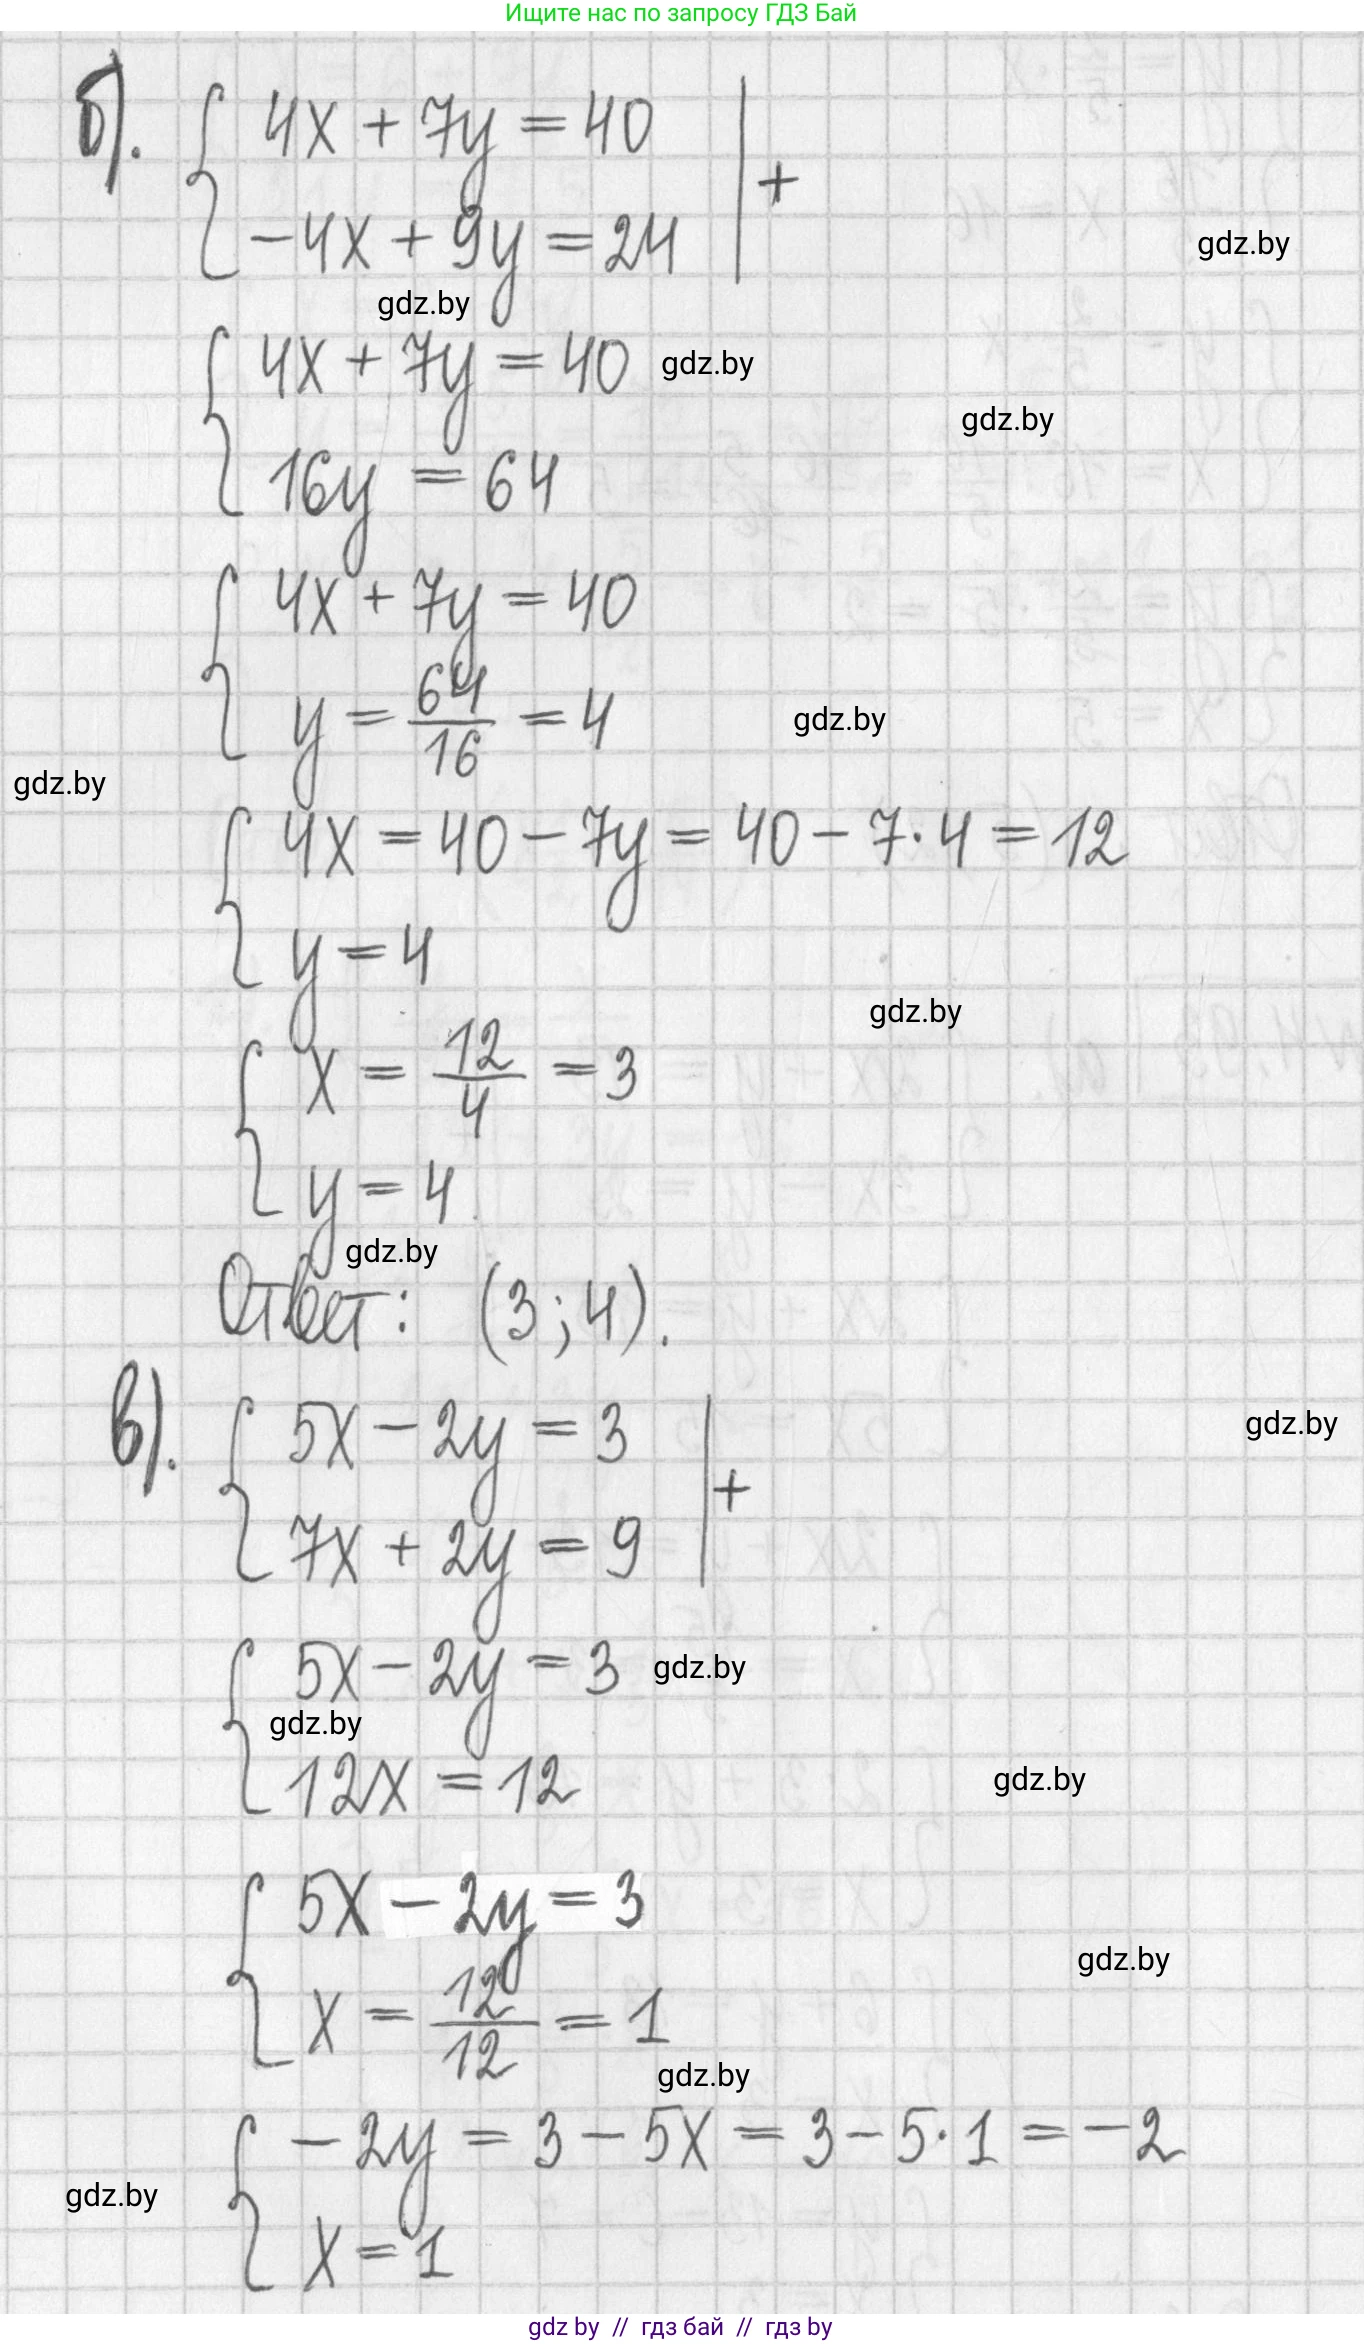 Ищите нас по запросу ГДЗ Бай
б). { 4x + 7y = 40 | +
-4x + 9y = 24
gdz.by
gdz.by
{ 4x + 7y = 40
gdz.by
gdz.by
16y = 64
{ 4x + 7y = 40
y = 64/16 = 4
gdz.by
gdz.by
{ 4x = 40 - 7y = 40 - 7·4 = 12
y = 4
gdz.by
{ x = 12/4 = 3
y = 4
gdz.by
Ответ: (3; 4).
в). { 5x - 2y = 3 | +
gdz.by
7x + 2y = 9
{ 5x - 2y = 3
gdz.by
gdz.by
12x = 12
gdz.by
{ 5x - 2y = 3
gdz.by
x = 12/12 = 1
gdz.by
{ -2y = 3 - 5x = 3 - 5·1 = -2
gdz.by
x = 1
gdz by // гдз бай // гдз by